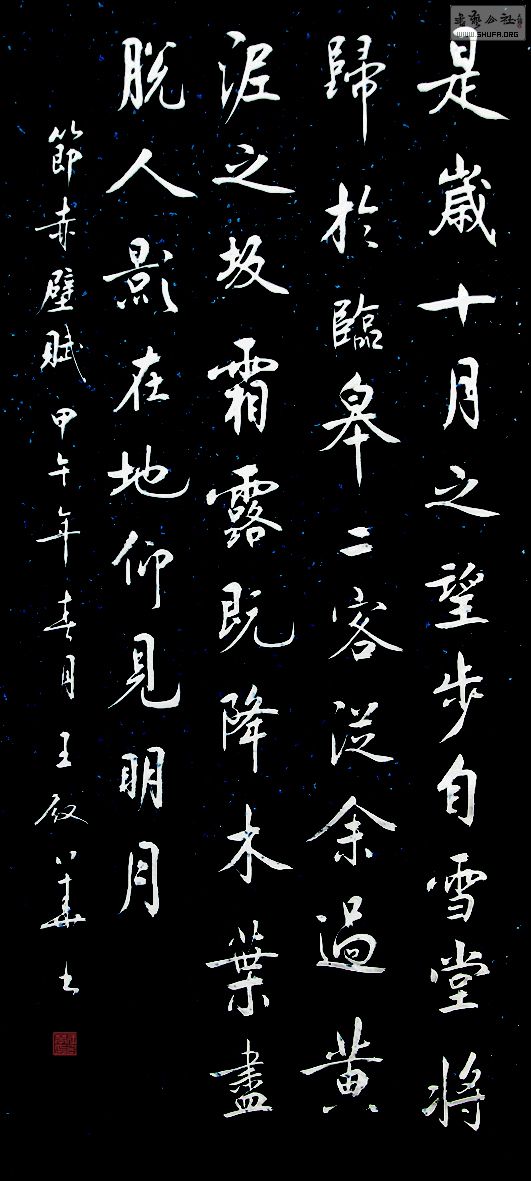 是歲十月之望步自雪堂將
歸於臨皋二客從余過黄
泥之坂霜露既降木葉盡
脱人影在地仰見明月
節赤壁賦甲午年春月王
書
WWW.SHUFA.ORG